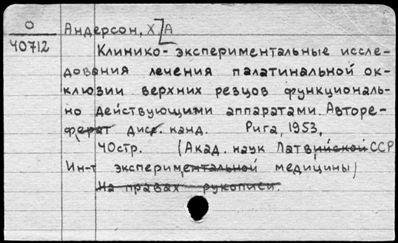 О
40712
Андерсон, Х А
Клинико-экспериментальные иссле-
дования лечения палатинальной ок-
клюзии верхних резцов функциональ-
но действующими аппаратами. Авторе-
ферат дис. канд. Рига, 1953,
40стр. (Акад. наук Латвийской ССР
Ин-т экспериментальной медицины)
На правах рукописи.